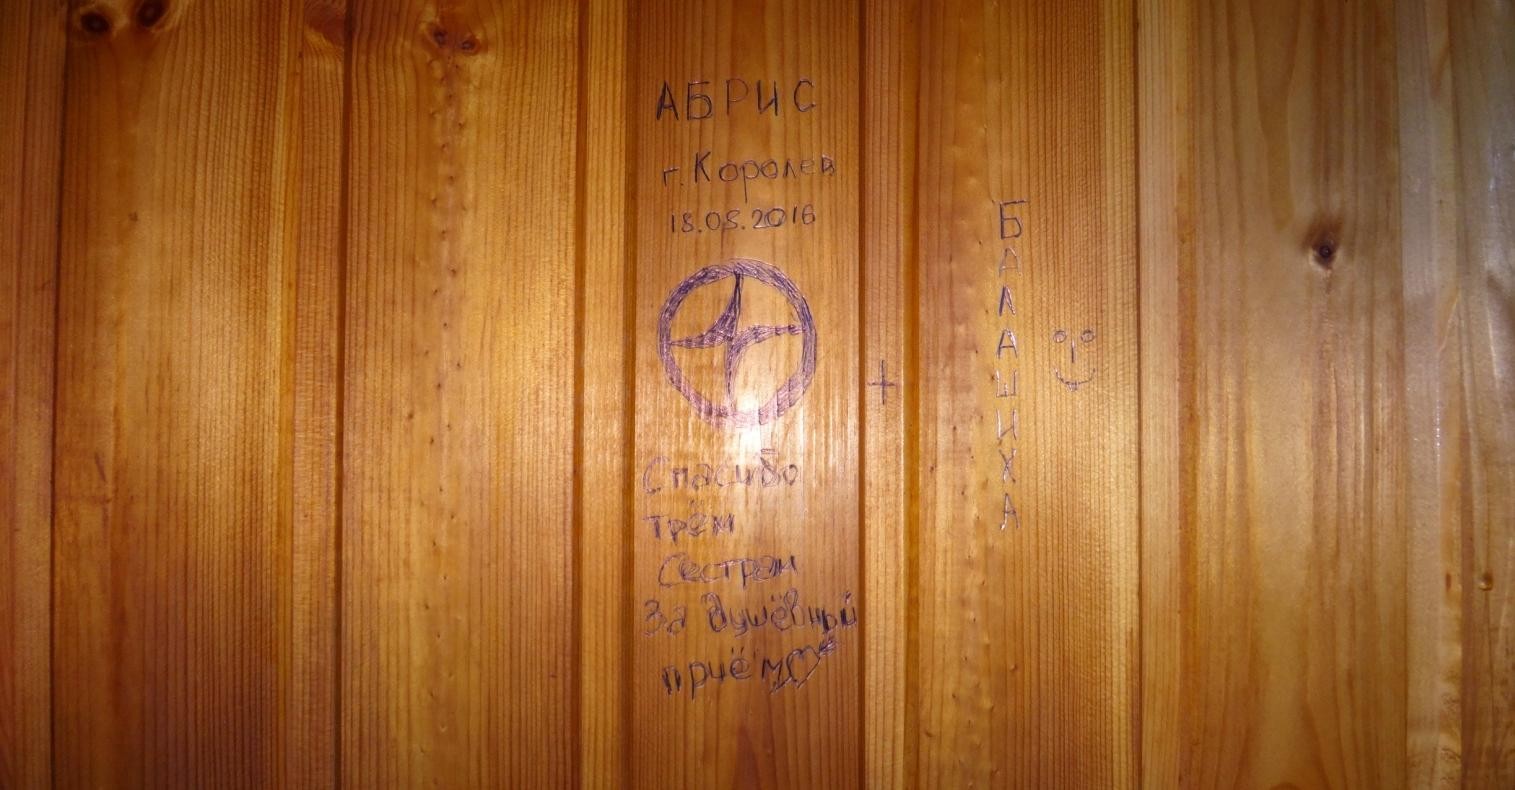 АБРИС
г. Королев
18.08.2016
Спасибо
трём
Сестрам
За душевный
приём
+
БАЛАШИХА